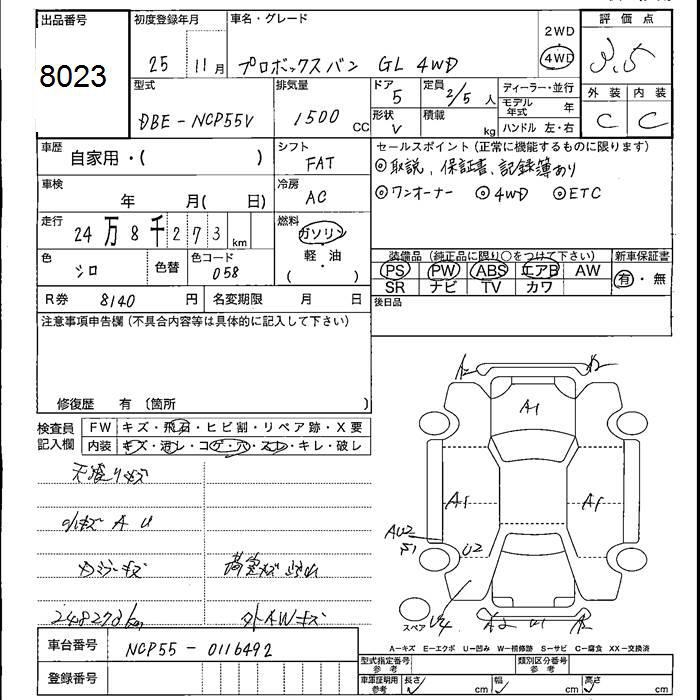 出品番号
8023
初度登録年月
25 11月
車名・グレード
プロボックスバン GL 4WD
2WD
4WD
評価点
3.5
外装 内装
C C
型式
DBE-NCP55V
排気量
1500 CC
ドア
5
定員
2/5 人
形状
V
積載
kg
ディーラー・並行
モデル年式 年
ハンドル 左・右
車歴
自家用・( )
シフト
FAT
セールスポイント(正常に機能するものに限ります)
◎取説、保証書、記録簿あり
◎ワンオーナー ◎4WD ◎ETC
車検
年 月( 日)
冷房
AC
走行
24万8千273km
燃料
ガソリン
軽・油
( )
色
シロ
色替
色コード
058
装備品(純正品に限り○をつけて下さい)
PS PW ABS エアB AW
SR ナビ TV カワ
新車保証書
有・無
R券 8140 円
名変期限 月 日
後日品
注意事項申告欄(不具合内容等は具体的に記入して下さい)
修復歴 有 〔箇所 〕
検査員記入欄
FW キズ・飛石・ヒビ割・リペア跡・X要
内装 キズ・汚レ・コゲ・穴・スレ・キレ・破レ
A2 A2
A1
A1 A1
AU2
S1
U2
U4
スペア
A2 U1 A2
小キズ A U
248273km
外AWキズ
車台番号 NCP55-0116492
登録番号
A-キズ E-エクボ U-凹み W-補修跡 S-サビ C-腐食 XX-交換済
型式指定番号 参考
類別区分番号 参考
車庫証明用 参考
長さ cm
幅 cm
高さ cm